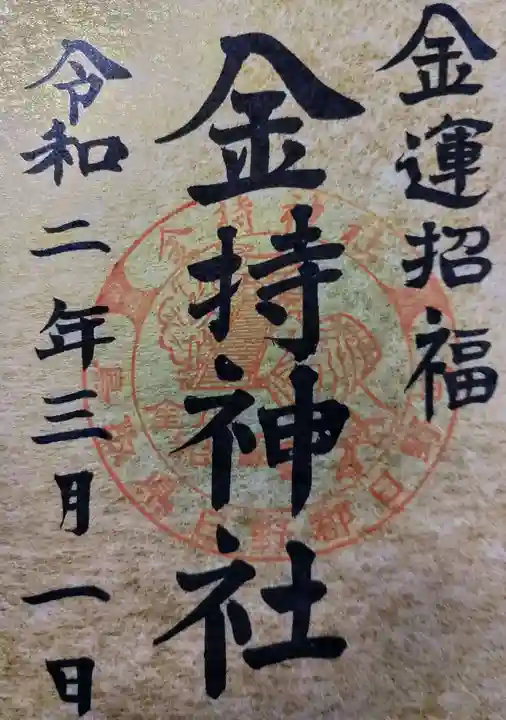 金運招福
金持神社
令和二年三月一日
金持神社